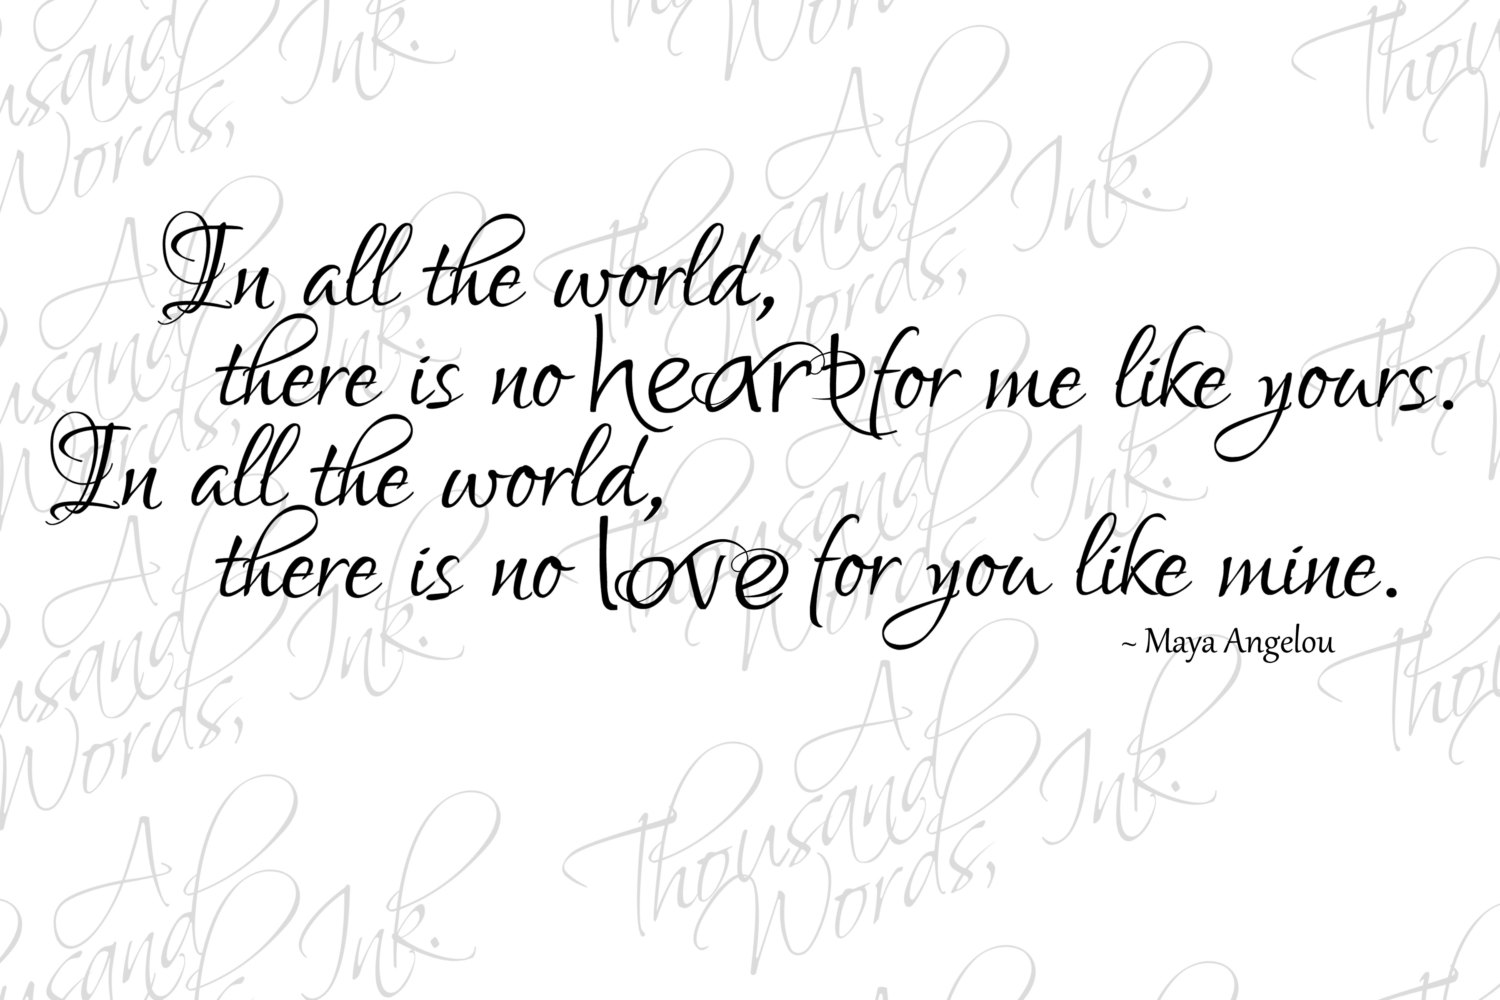 In all the world,
there is no heart for me like yours.
In all the world,
there is no love for you like mine.
~ Maya Angelou
A Thousand Words, Ink.